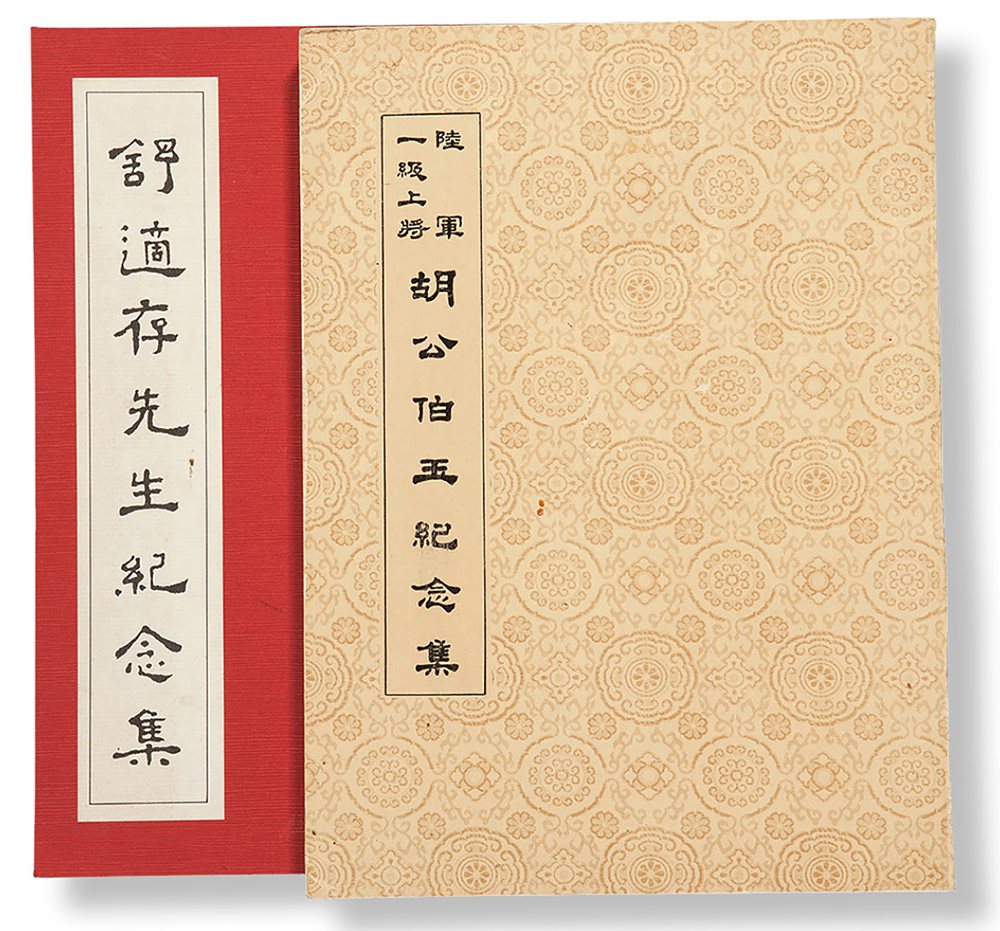 舒適存先生紀念集
陸軍
一級上將
胡公伯玉紀念集